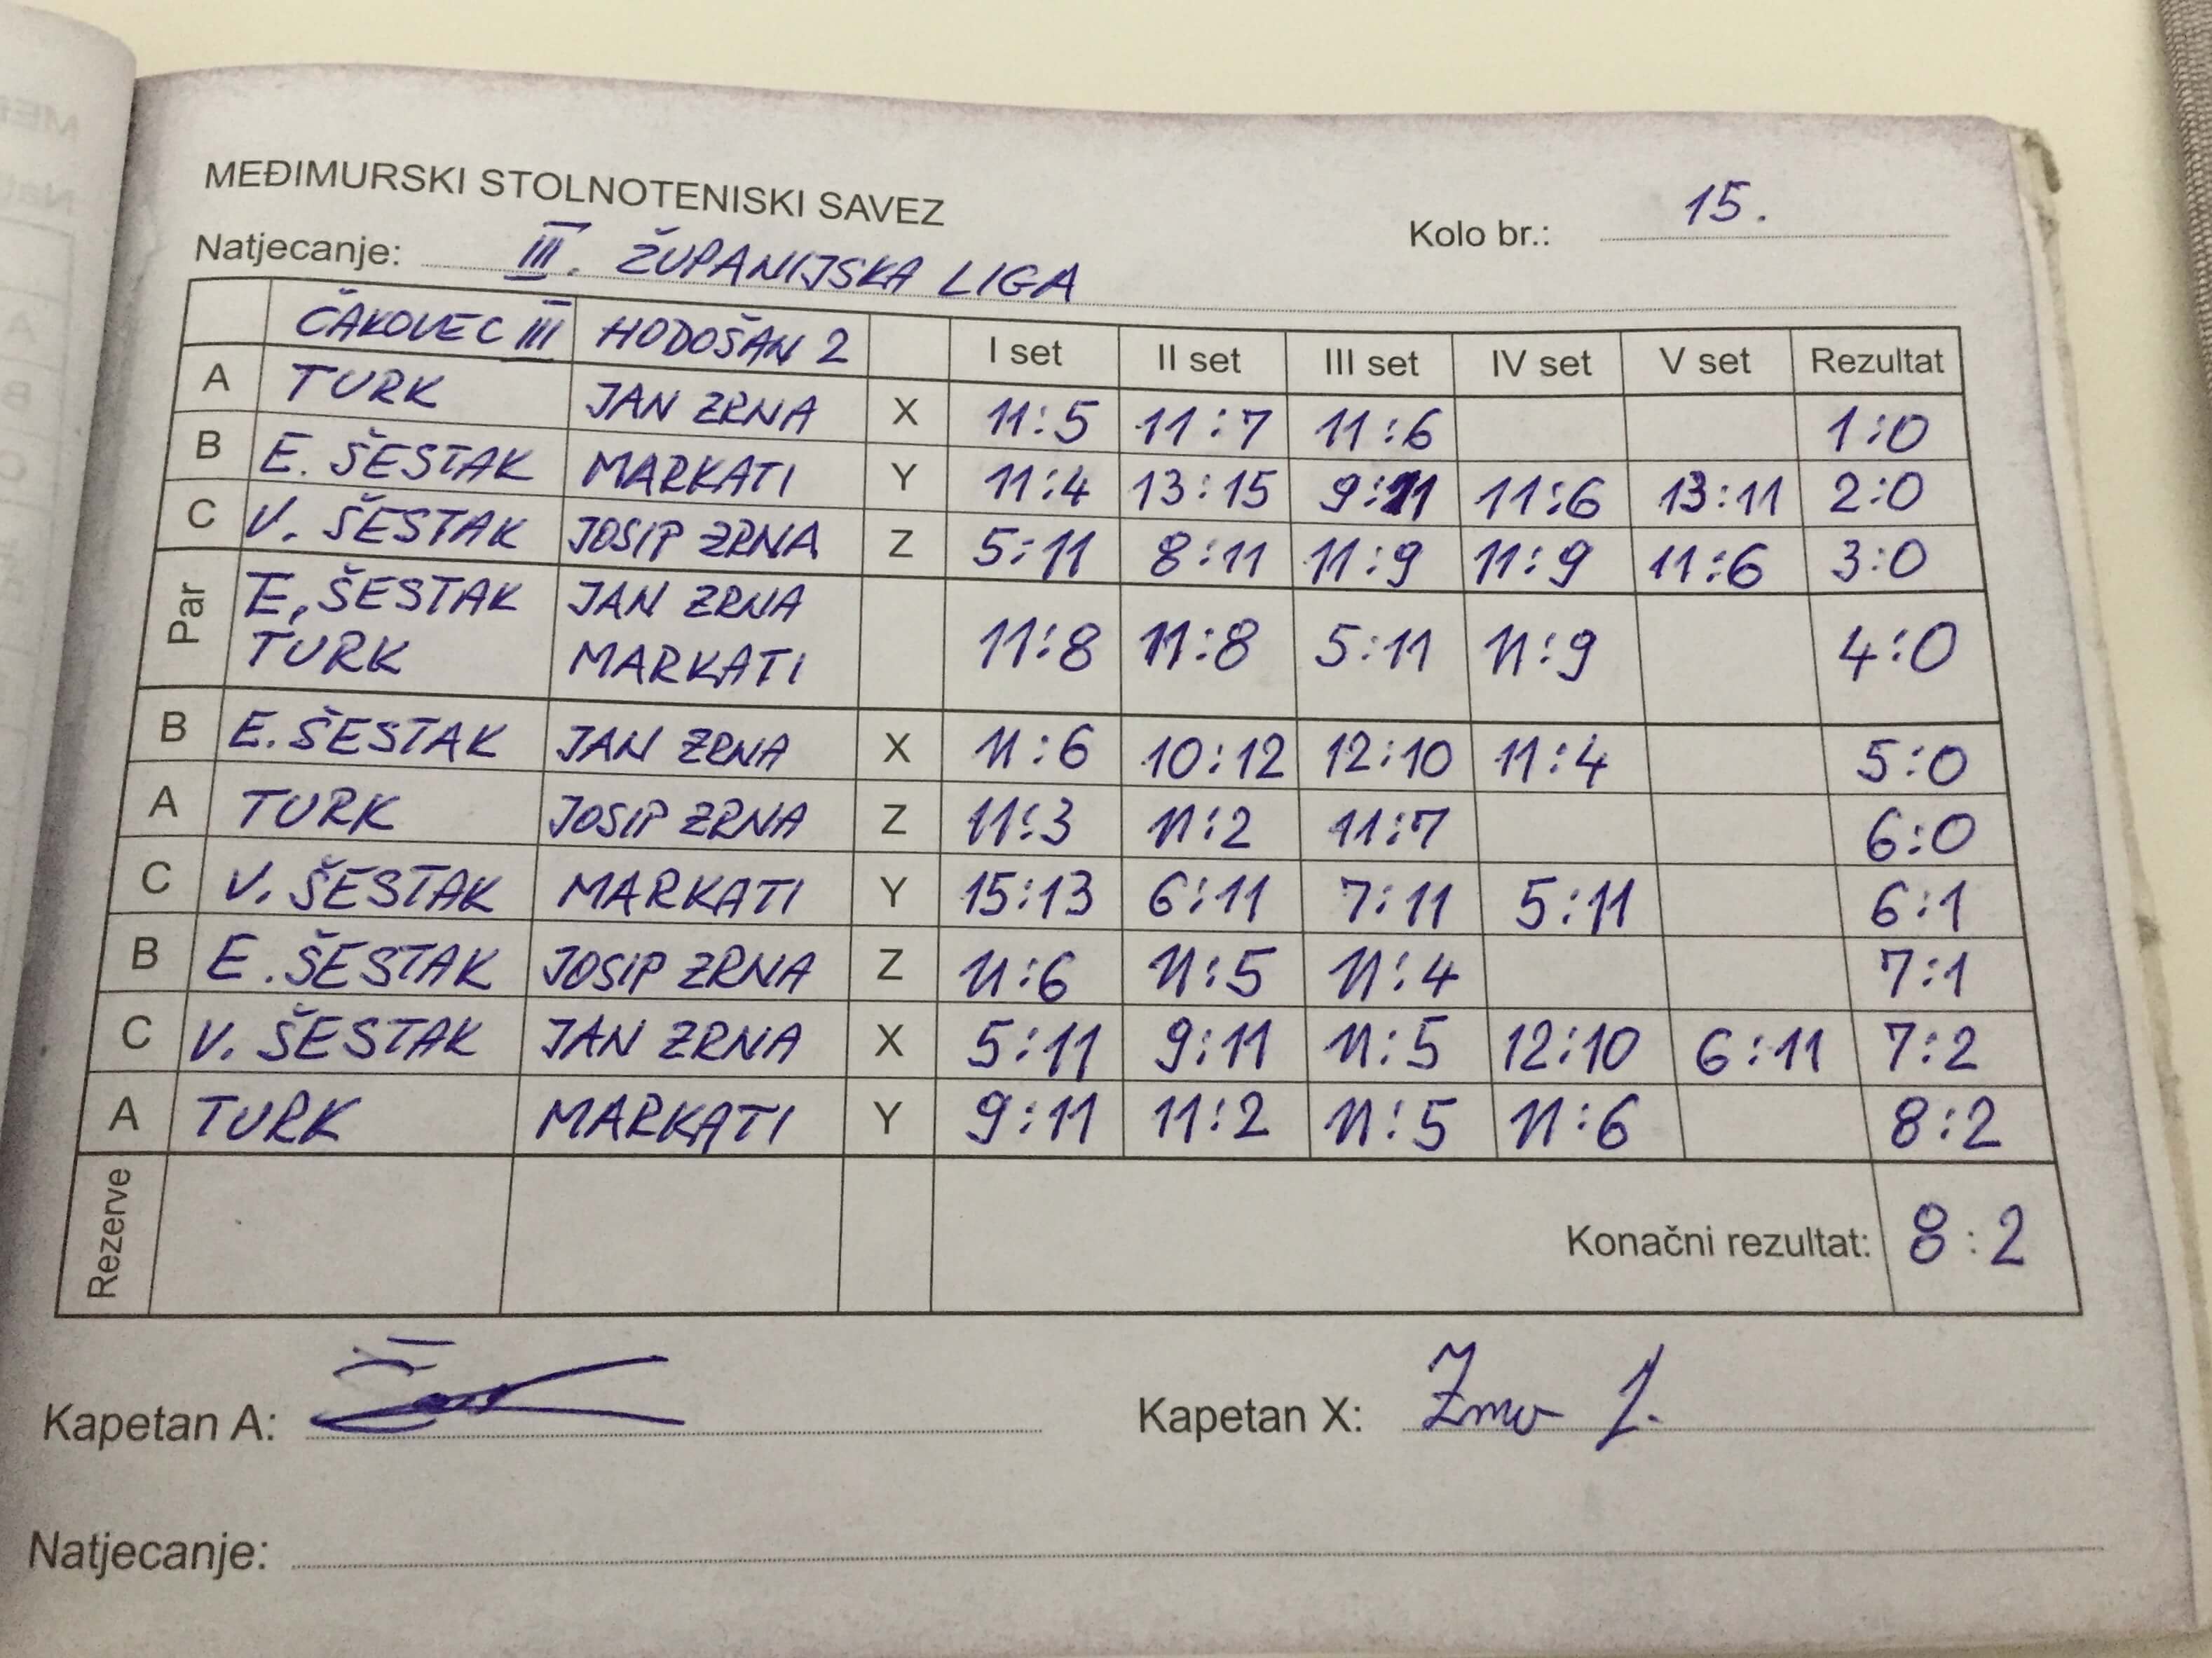 MEĐIMURSKI STOLNOTENISKI SAVEZ
Kolo br.: 15.
Natjecanje: III. ŽUPANIJSKA LIGA
ČAKOVEC III HODOŠAN 2 I set II set III set IV set V set Rezultat
A TURK JAN ZRNA X 11:5 11:7 11:6 1:0
B E. ŠESTAK MARKATI Y 11:4 13:15 9:11 11:6 13:11 2:0
C V. ŠESTAK JOSIP ZRNA Z 5:11 8:11 11:9 11:9 11:6 3:0
Par E. ŠESTAK JAN ZRNA
TURK MARKATI 11:8 11:8 5:11 11:9 4:0
B E. ŠESTAK JAN ZRNA X 11:6 10:12 12:10 11:4 5:0
A TURK JOSIP ZRNA Z 11:3 11:2 11:7 6:0
C V. ŠESTAK MARKATI Y 15:13 6:11 7:11 5:11 6:1
B E. ŠESTAK JOSIP ZRNA Z 11:6 11:5 11:4 7:1
C V. ŠESTAK JAN ZRNA X 5:11 9:11 11:5 12:10 6:11 7:2
A TURK MARKATI Y 9:11 11:2 11:5 11:6 8:2
Rezerve Konačni rezultat: 8:2
Kapetan A: Kapetan X: Zrna J.
Natjecanje: